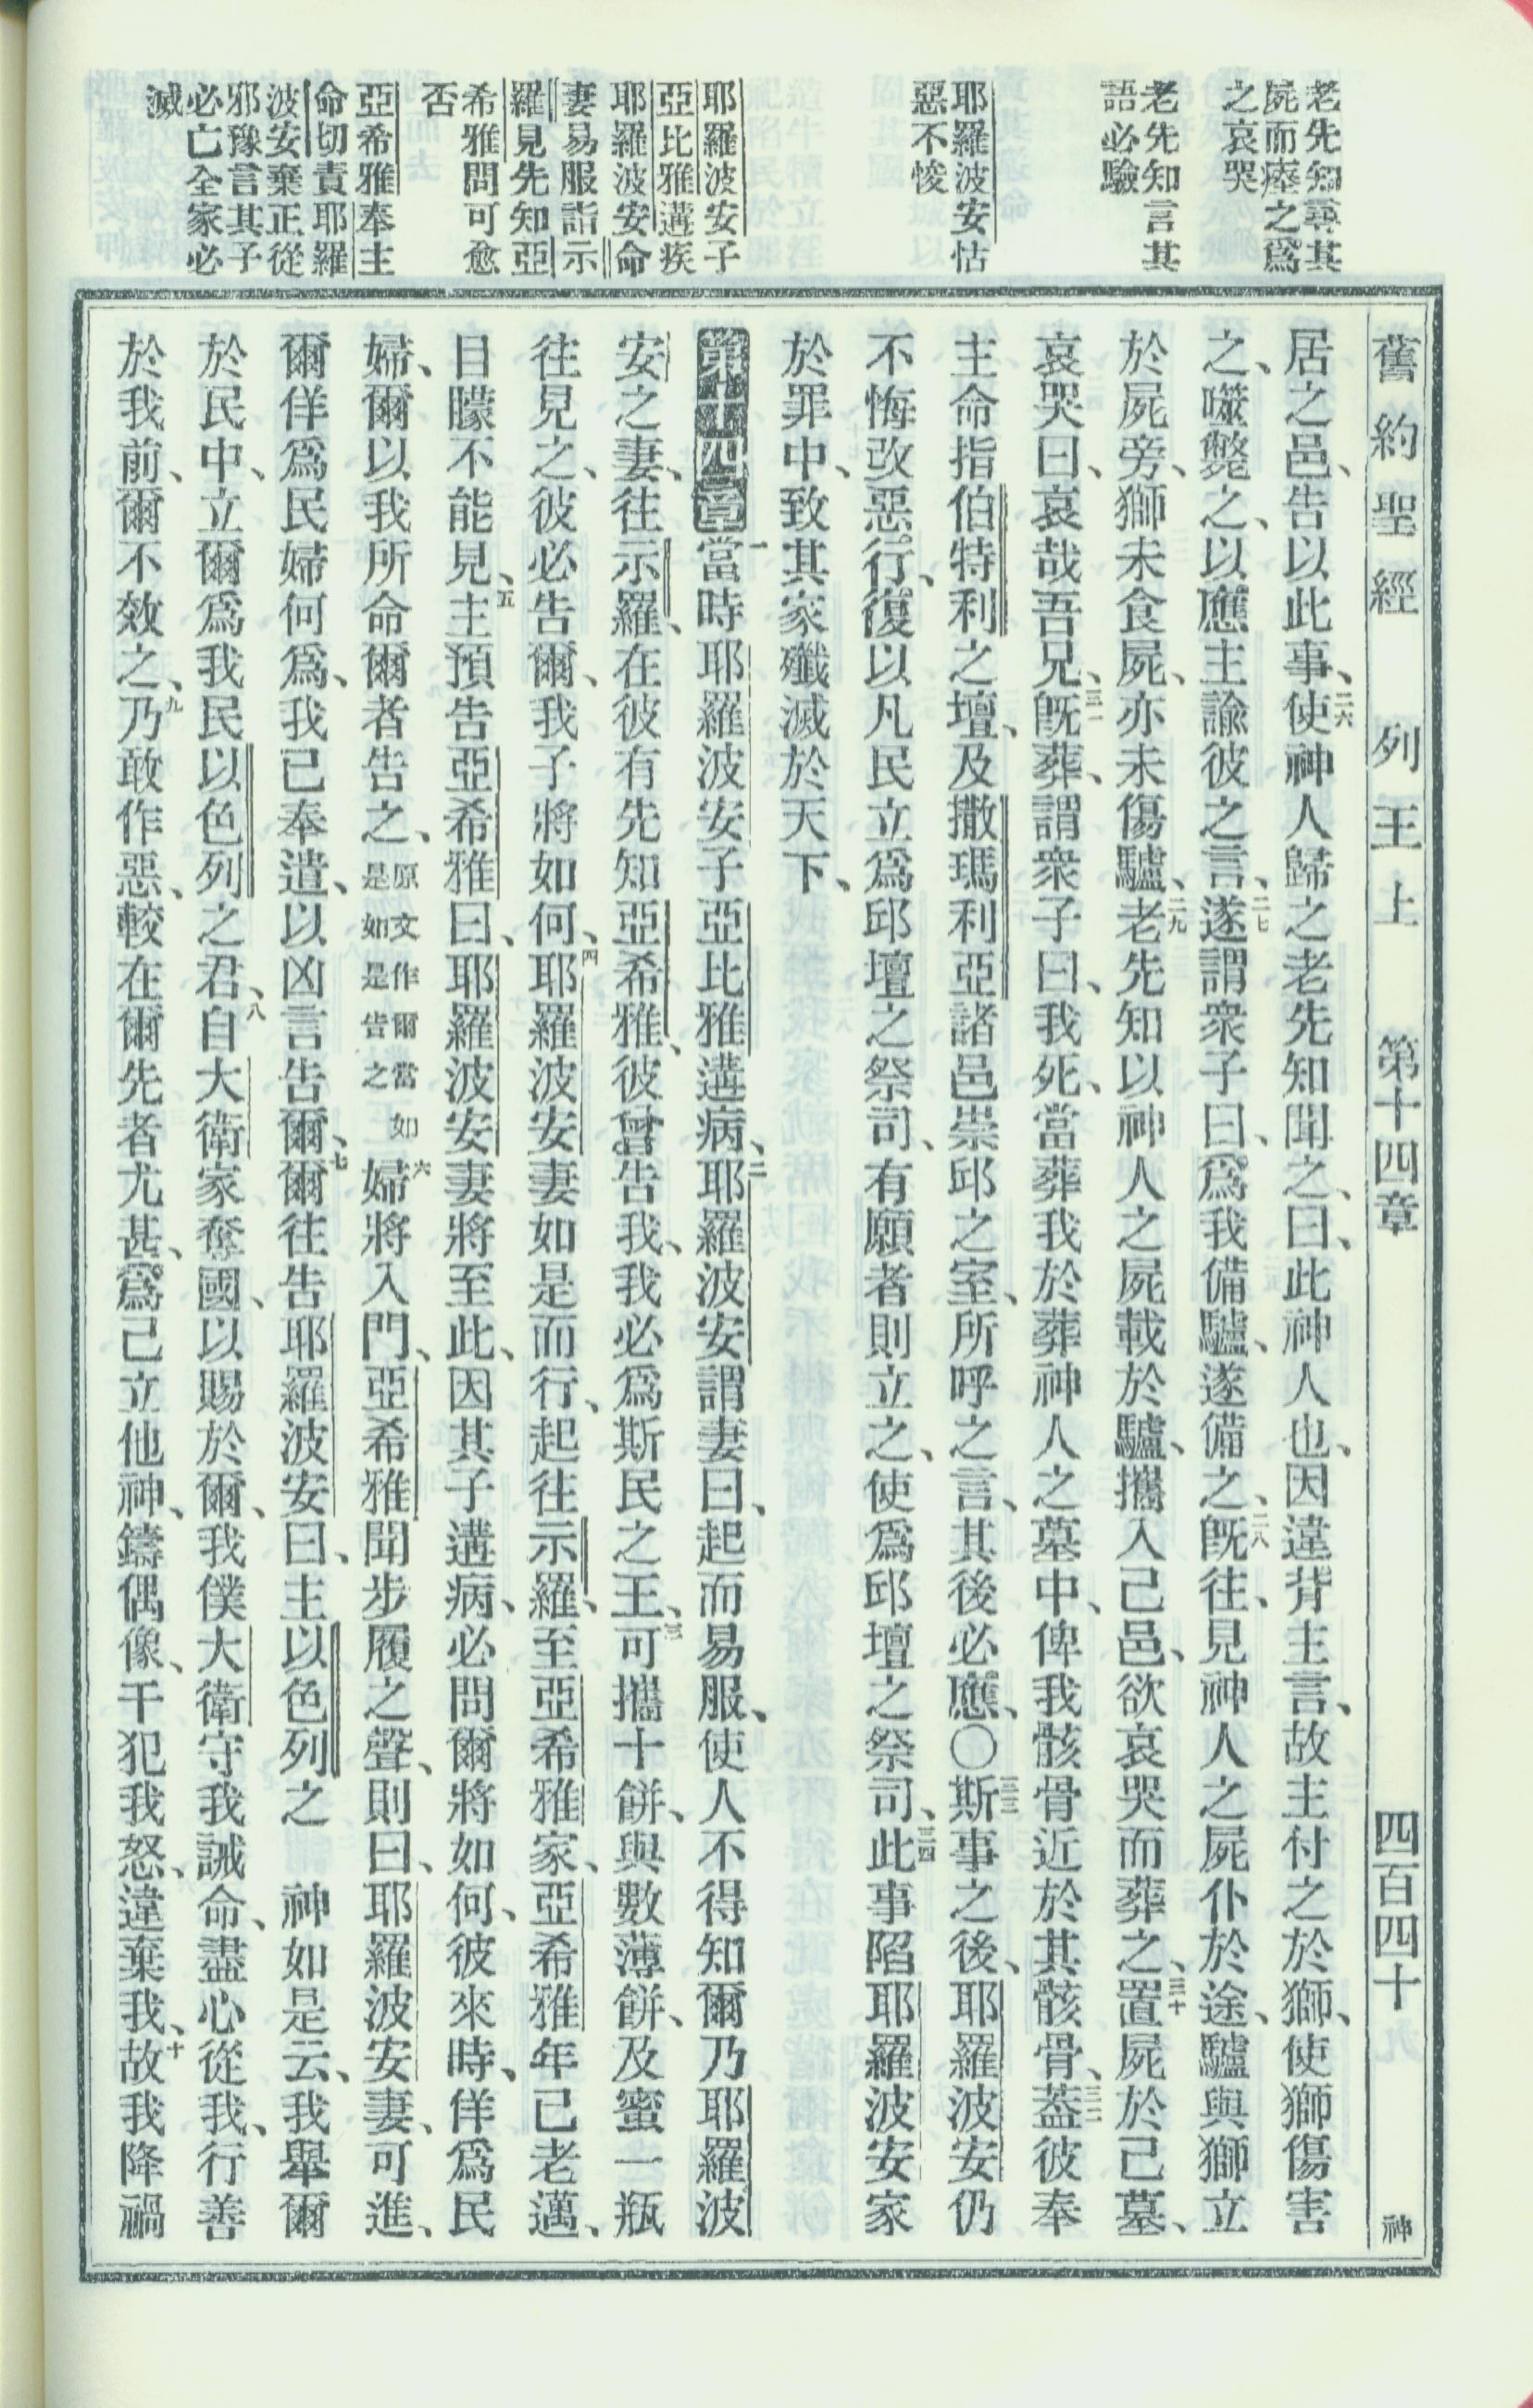 舊約聖經 列王上 第十四章 四百四十 神
老先知尋其
屍而瘞之爲
之哀哭
老先知言其
語必驗
耶羅波安怙
惡不悛
耶羅波安子
亞比雅遘疾
耶羅波安命
妻易服詣示
羅見先知亞
希雅問可愈
否
亞希雅奉主
命切責耶羅
波安棄正從
邪豫言其子
必亡全家必
滅
居之邑、告以此事、二六使神人歸之老先知聞之、曰、此神人也、因違背主言、故主付之於獅、使獅傷害
之、噬斃之、以應主諭彼之言、二七遂謂衆子曰、爲我備驢、遂備之、二八旣往、見神人之屍仆於途、驢與獅立
於屍旁、獅未食屍、亦未傷驢、二九老先知以神人之屍載於驢、攜入己邑、欲哀哭而葬之、三十置屍於己墓、
哀哭曰、哀哉吾兄、三一旣葬、謂衆子曰、我死、當葬我於葬神人之墓中、俾我骸骨近於其骸骨、三二蓋彼奉
主命指伯特利之壇、及撒瑪利亞諸邑崇邱之室、所呼之言、其後必應、〇三三斯事之後、耶羅波安仍
不悔改惡行、復以凡民立爲邱壇之祭司、有願者則立之、使爲邱壇之祭司、三四此事陷耶羅波安家
於罪中、致其家殲滅於天下、
第十四章一當時耶羅波安子亞比雅遘病、二耶羅波安謂妻曰、起而易服、使人不得知爾乃耶羅波
安之妻、往示羅、在彼有先知亞希雅、彼曾告我、我必爲斯民之王、三可攜十餅、與數薄餅、及蜜一瓶
往見之、彼必告爾、我子將如何、四耶羅波安妻如是而行、起往示羅、至亞希雅家、亞希雅年已老邁、
目矇不能見、五主預告亞希雅曰、耶羅波安妻將至此、因其子遘病、必問爾將如何、彼來時、佯爲民
婦、爾以我所命爾者告之、原文作爾當如是如是告之六婦將入門、亞希雅聞步履之聲、則曰、耶羅波安妻、可進、
爾佯爲民婦何爲、我已奉遣、以凶言告爾、七爾往告耶羅波安曰、主以色列之 神如是云、我舉爾
於民中、立爾爲我民以色列之君、八自大衛家奪國、以賜於爾、我僕大衛守我誡命、盡心從我、行善
於我前、爾不效之、九乃敢作惡、較在爾先者尤甚、爲己立他神、鑄偶像、干犯我怒、違棄我、十故我降禍